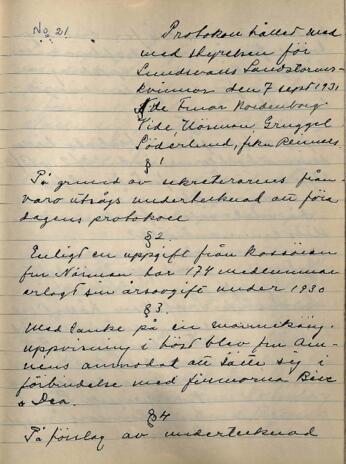 No 21
Protokoll hållet med
med styrelsen för
Sundsvalls Landstorms-
kvinnor den 7 sept 1931
Nordenborg
Vide, Nörman, Gruggel
Söderlund, frkn
§ 1
På grund av sekreterarens från-
varo utsågs undertecknad att föra
dagens protokoll
§ 2.
Enligt en uppgift från kassören
fru Nörman har 174 medlemmar
erlagt sin årsavgift under 1930
§ 3.
Med tanke på en mannekäng.
uppvisning i höst blev fru
anmodat att sätta sig i
förbindelse med firmorna
& Dea.
§ 4
På förslag av undertecknad